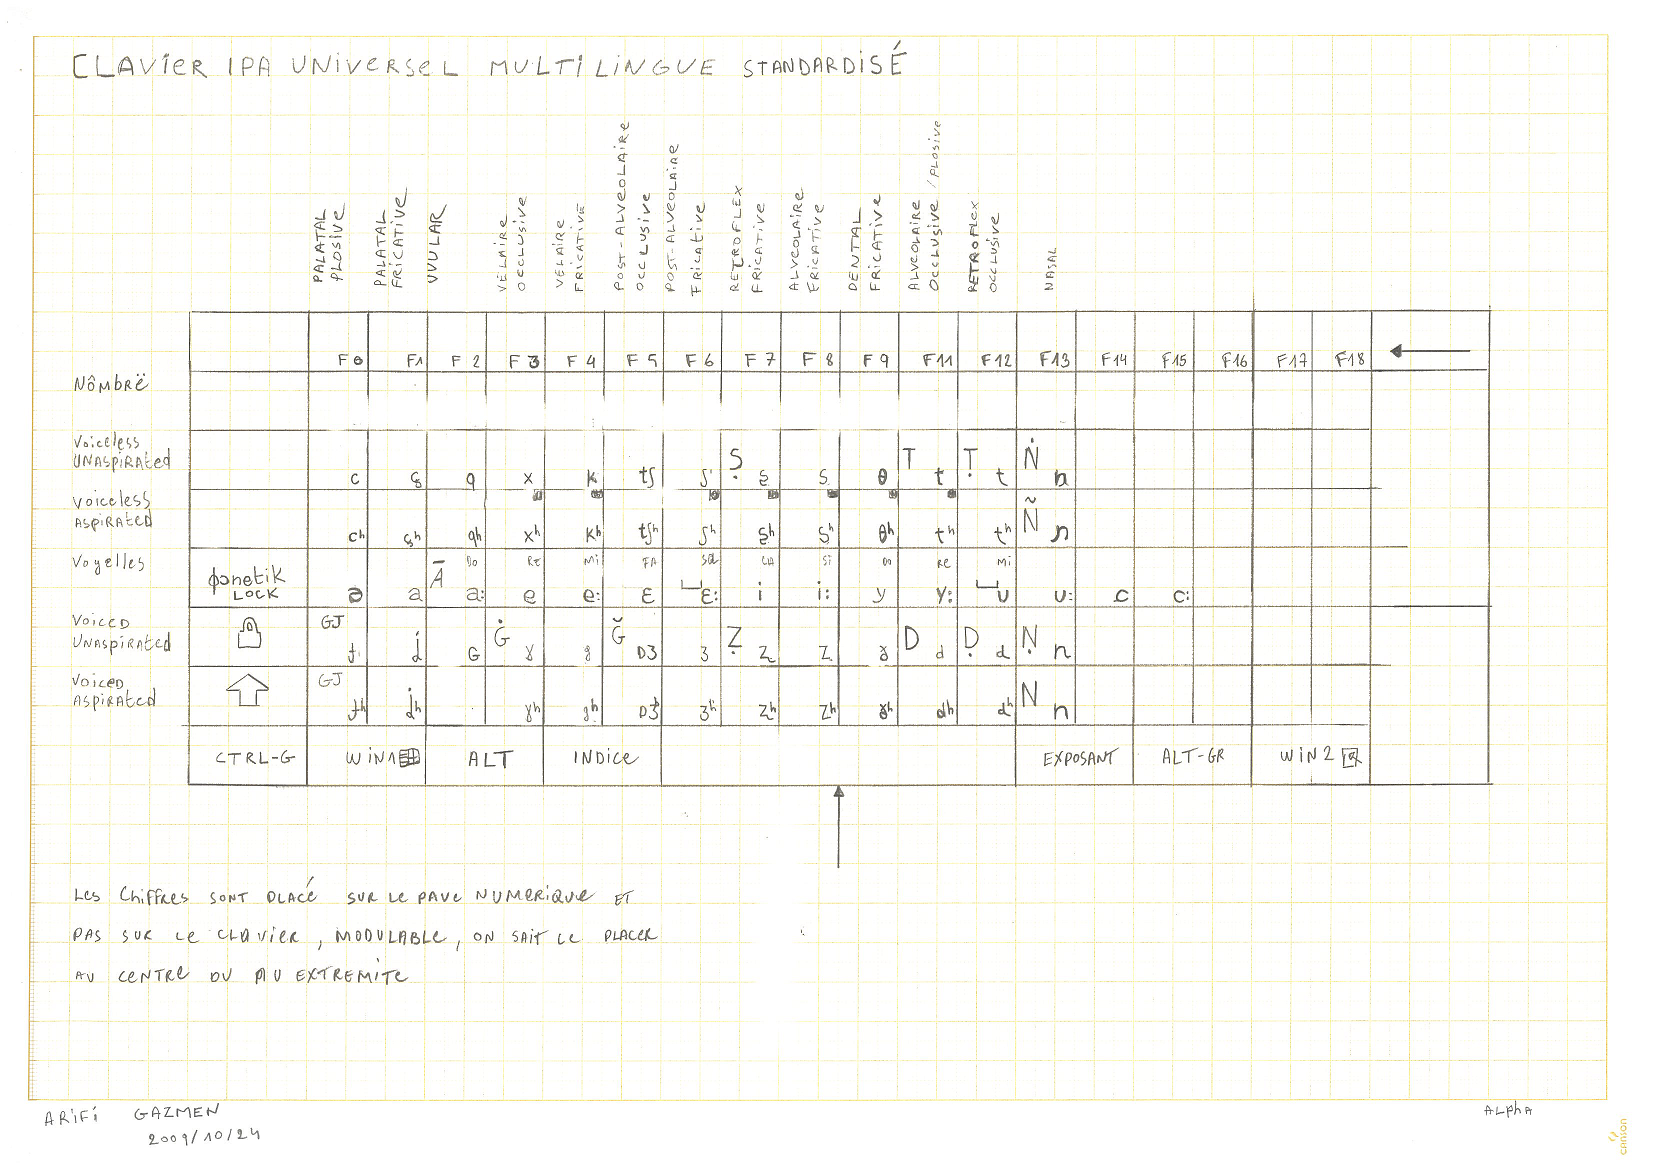 CLAVIER IPA UNIVERSEL MULTILINGUE STANDARDISÉ
PALATAL PLOSIVE
PALATAL FRICATIVE
UVULAR
VÉLAIRE OCCLUSIVE
VÉLAIRE FRICATIVE
POST-ALVEOLAIRE OCCLUSIVE
POST-ALVEOLAIRE FRICATIVE
RETROFLEX FRICATIVE
ALVEOLAIRE FRICATIVE
DENTAL FRICATIVE
ALVEOLAIRE OCCLUSIVE / PLOSIVE
RETROFLEX OCCLUSIVE
NASAL
F0 F1 F2 F3 F4 F5 F6 F7 F8 F9 F11 F12 F13 F14 F15 F16 F17 F18
NÔMBRË
Voiceless
UNASPIRATED
S̩ T Ṭ Ṅ
c ʂ q x k tʃ ʃ ʂ s θ t t n
Voiceless
ASPIRATED
Ñ
cʰ çʰ qʰ xʰ kʰ tʃʰ ʃʰ ʂʰ sʰ θʰ tʰ tʰ ɲ
Voyelles
Do Re Mi FA Sol LA Si Do RE Mi
ɸɔnetik
LOCK
Ā
ə a a: e e: ɛ ɛ: i i: y y: u u: c c:
VOICED
UNASPIRATED
GJ Ġ Ğ Ẓ D Ḍ Ṇ
ɟ ʝ G ɣ g D3 3 ʐ z ɣ d d n
VOICED
ASPIRATED
GJ N
ɟʰ ʝʰ ɣʰ gʰ D3ʰ 3ʰ ʐʰ zʰ ɣʰ dʰ dʰ n
CTRL-G WIN1 ALT INDICE EXPOSANT ALT-GR WIN2
LES CHIFFRES SONT PLACÉ SUR LE PAVE NUMERIQUE ET
PAS SUR LE CLAVIER, MODULABLE, ON SAIT LE PLACER
AU CENTRE OU AU EXTREMITE
ARIFI GAZMEN
2009/10/24
ALPHA
CANSON